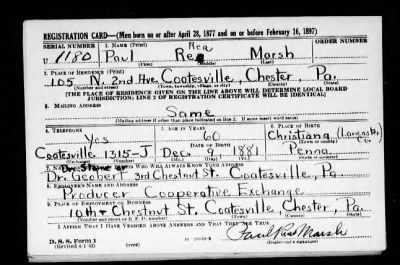 REGISTRATION CARD—(Men born on or after April 28, 1877 and on or before February 16, 1897)
SERIAL NUMBER 1. NAME (Print)
Rea
U 1180 Paul Rea Marsh
(First) (Middle) (Last)
2. PLACE OF RESIDENCE (Print)
105 N. 2nd Ave. Coatesville, Chester, Pa.
(Number and street) (Town, township, village, or city) (County) (State)
[THE PLACE OF RESIDENCE GIVEN ON THE LINE ABOVE WILL DETERMINE LOCAL BOARD
JURISDICTION; LINE 2 OF REGISTRATION CERTIFICATE WILL BE IDENTICAL]
3. MAILING ADDRESS
Same
[Mailing address if other than place indicated on line 2. If same insert word same]
4. TELEPHONE 5. AGE IN YEARS 6. PLACE OF BIRTH
Yes 60 Christiana (Lancaster Co
DATE OF BIRTH
Coatesville 1315-J Dec 9 1881 Penna
7. NAME AND ADDRESS OF PERSON WHO WILL ALWAYS KNOW YOUR ADDRESS
Dr. Geobert 3rd Chestnut St. Coatesville, Pa
8. EMPLOYER'S NAME AND ADDRESS
Producer Cooperative Exchange
9. PLACE OF EMPLOYMENT OR BUSINESS
10th & Chestnut St. Coatesville, Chester, Pa.
(Number and street or R. F. D. number) (Town) (County) (State)
I AFFIRM THAT I HAVE VERIFIED ABOVE ANSWERS AND THAT THEY ARE TRUE.
D. S. S. Form 1
(Revised 4-1-42) (over) Paul Rea Marsh
(Registrant's signature)